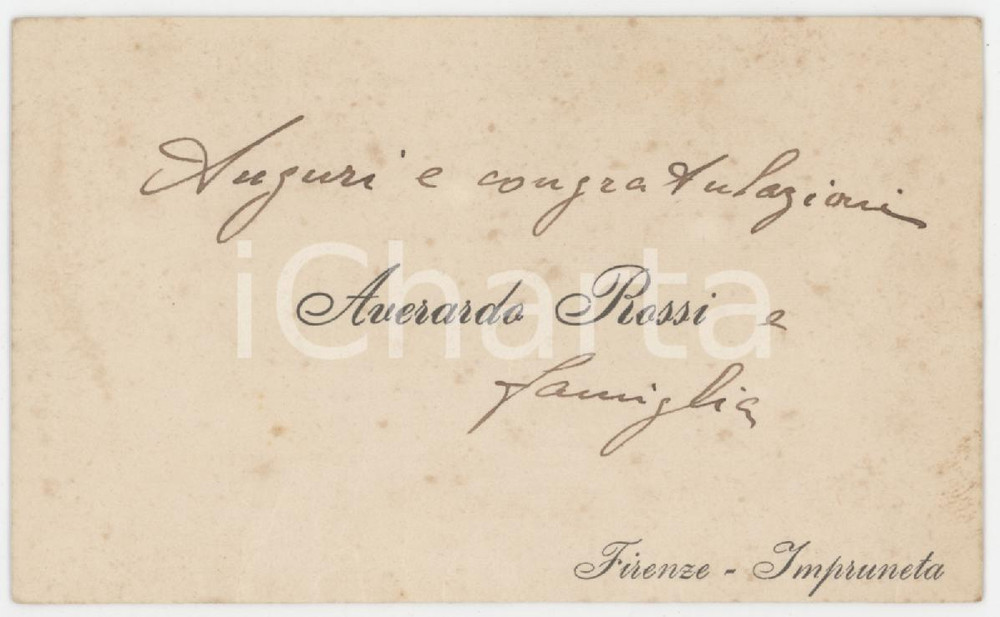 Auguri e congratulazioni
iCharta
Averardo Rossi e
famiglia
Firenze - Impruneta